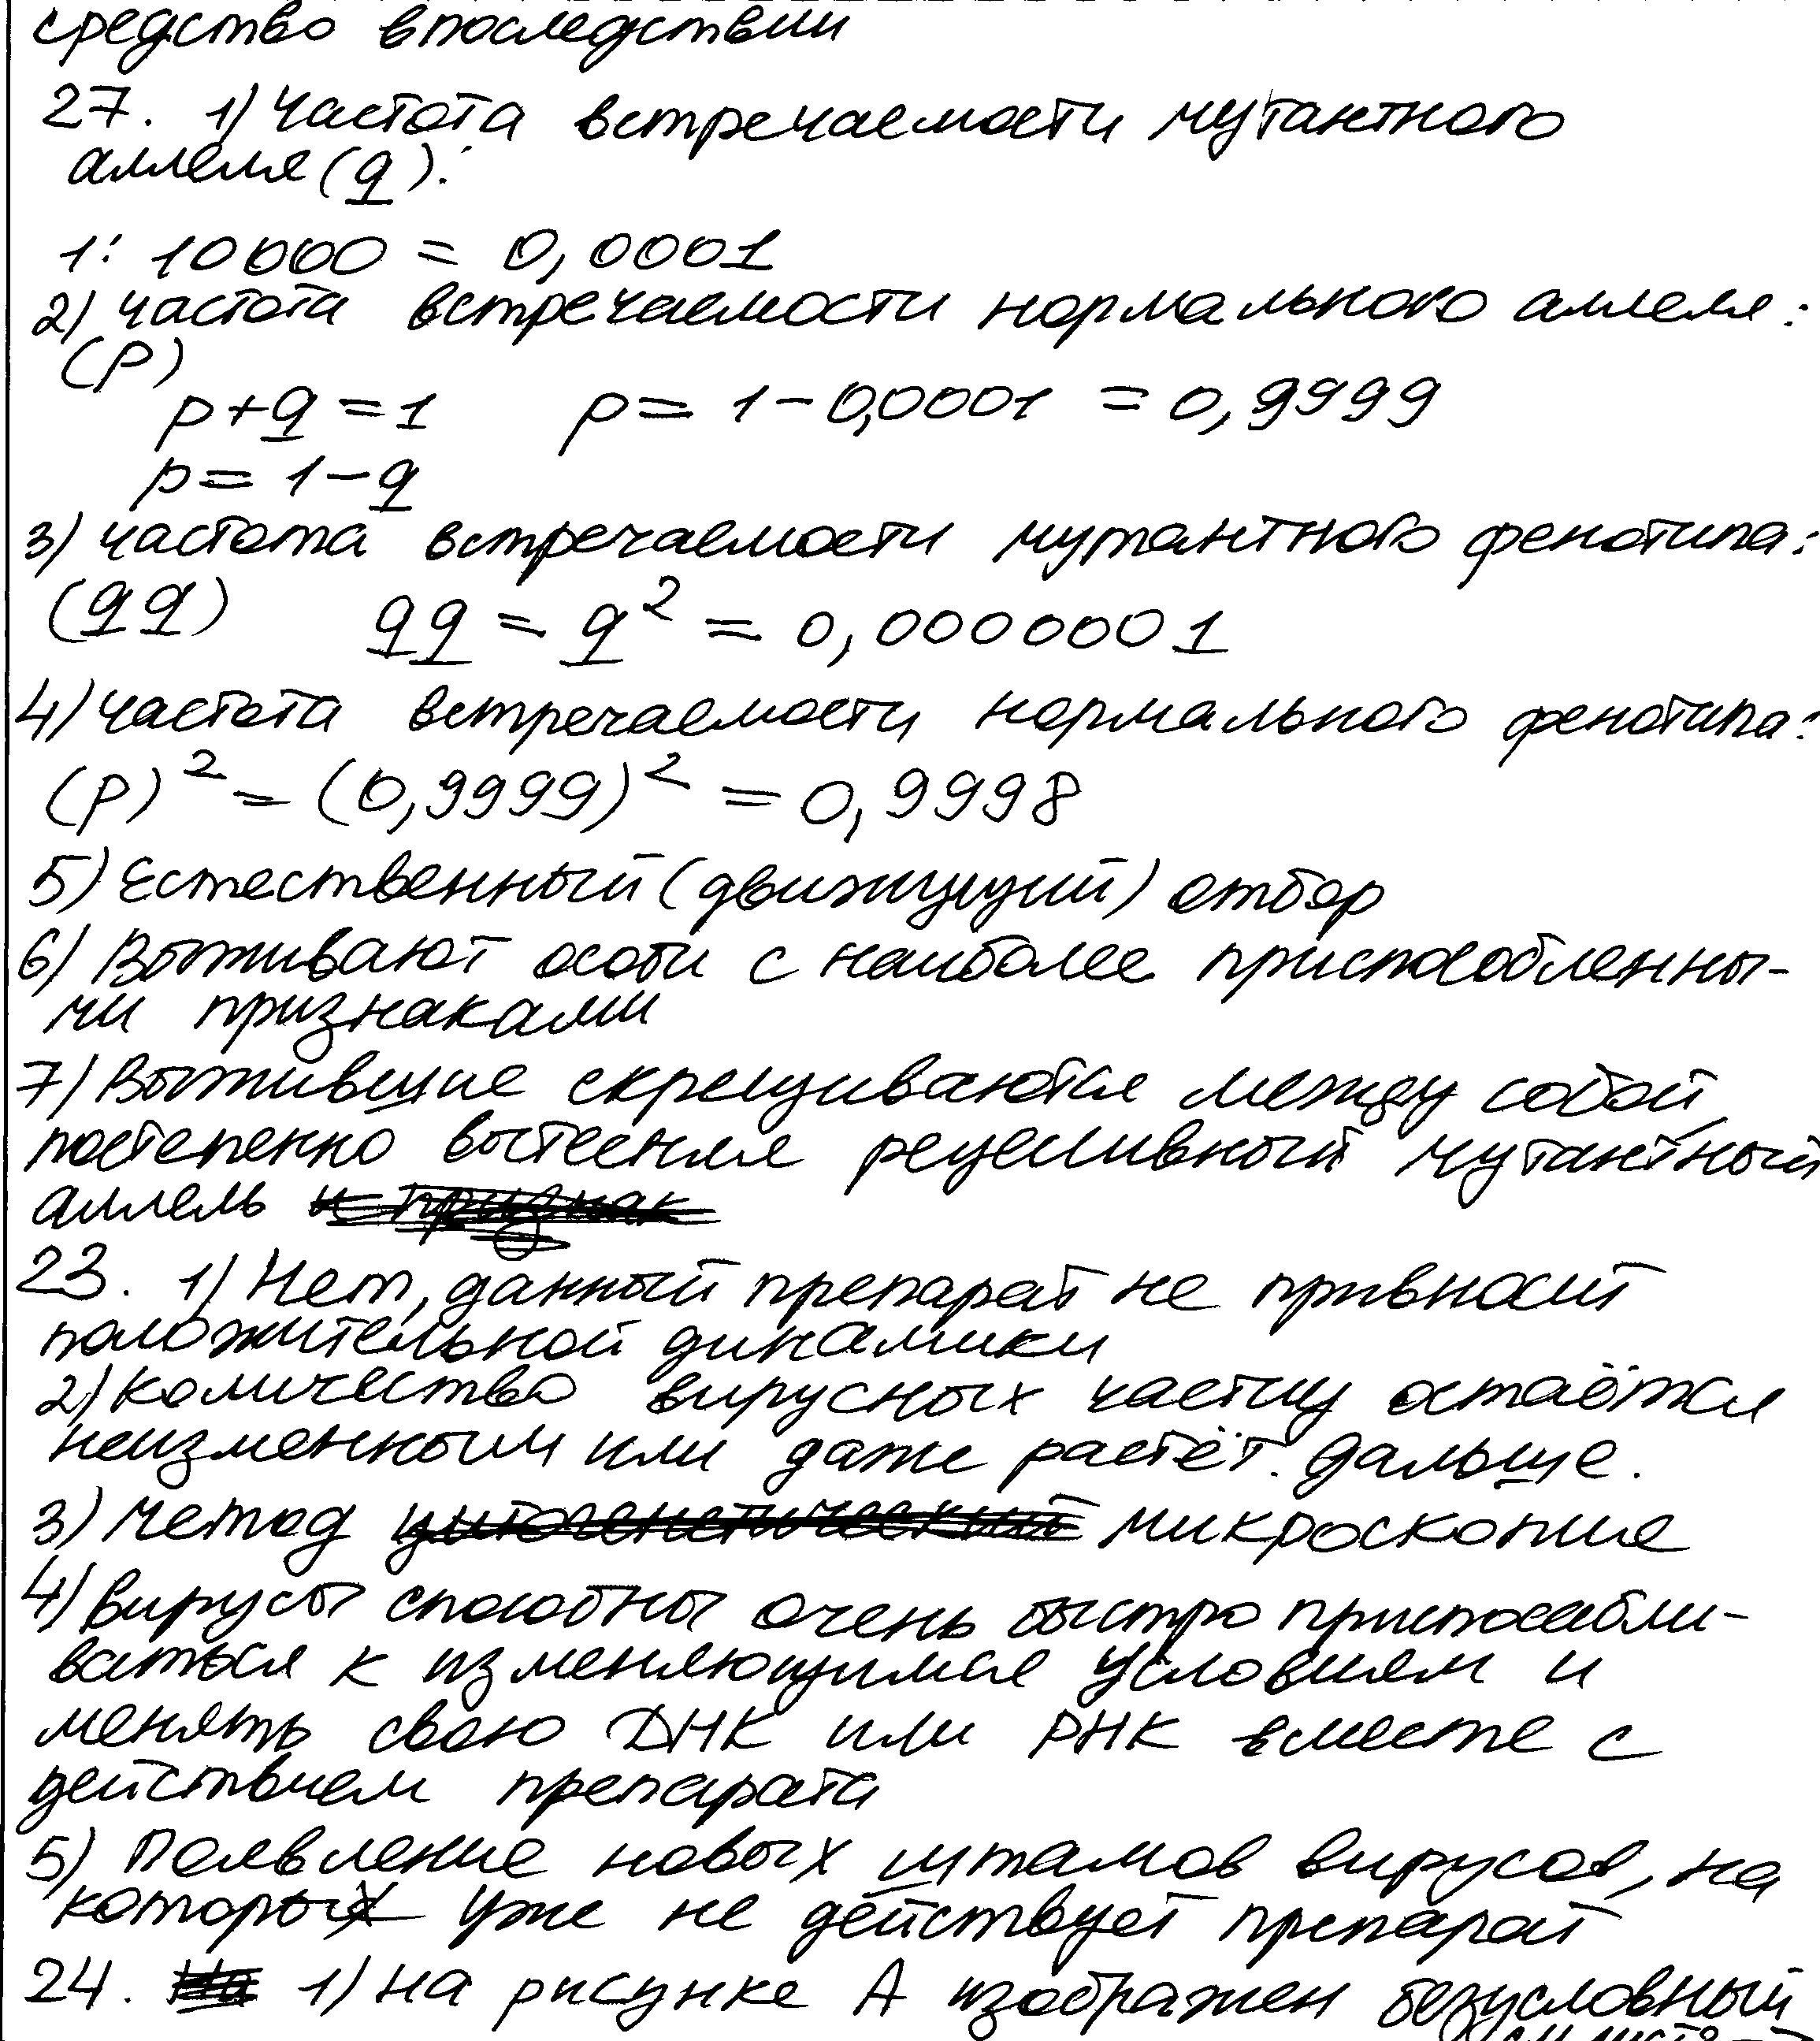 средство впоследствии
27. 1) Частота встречаемости мутантного
аллеля (q):
1: 10000 = 0,0001
2) частота встречаемости нормального аллеля:
(p)
p+q=1 p= 1-0,0001 = 0,9999
p= 1-q
3) частота встречаемости мутантного фенотипа:
(qq) qq = q² = 0,00000001
4) частота встречаемости нормального фенотипа:
(p)² = (0,9999)² = 0,9998
5) Естественный (движущий) отбор
6) Выживают особи с наиболее приспособленны-
ми признаками
7) Выжившие скрещиваются между собой,
постепенно вытесняя рецессивный мутантный
аллель и признак
23. 1) Нет, данный препарат не привносит
положительной динамики
2) количество вирусных частиц остаётся
неизменным или даже растёт. дальше.
3) метод цитогенетический микроскопия
4) вирусы способны очень быстро приспосабли-
ваться к изменяющимся условиям и
менять свою ДНК или РНК вместе с
действием препарата
5) Появление новых штамов вирусов, на
которых уже не действует препарат
24. На 1) на рисунке А изображен безусловный